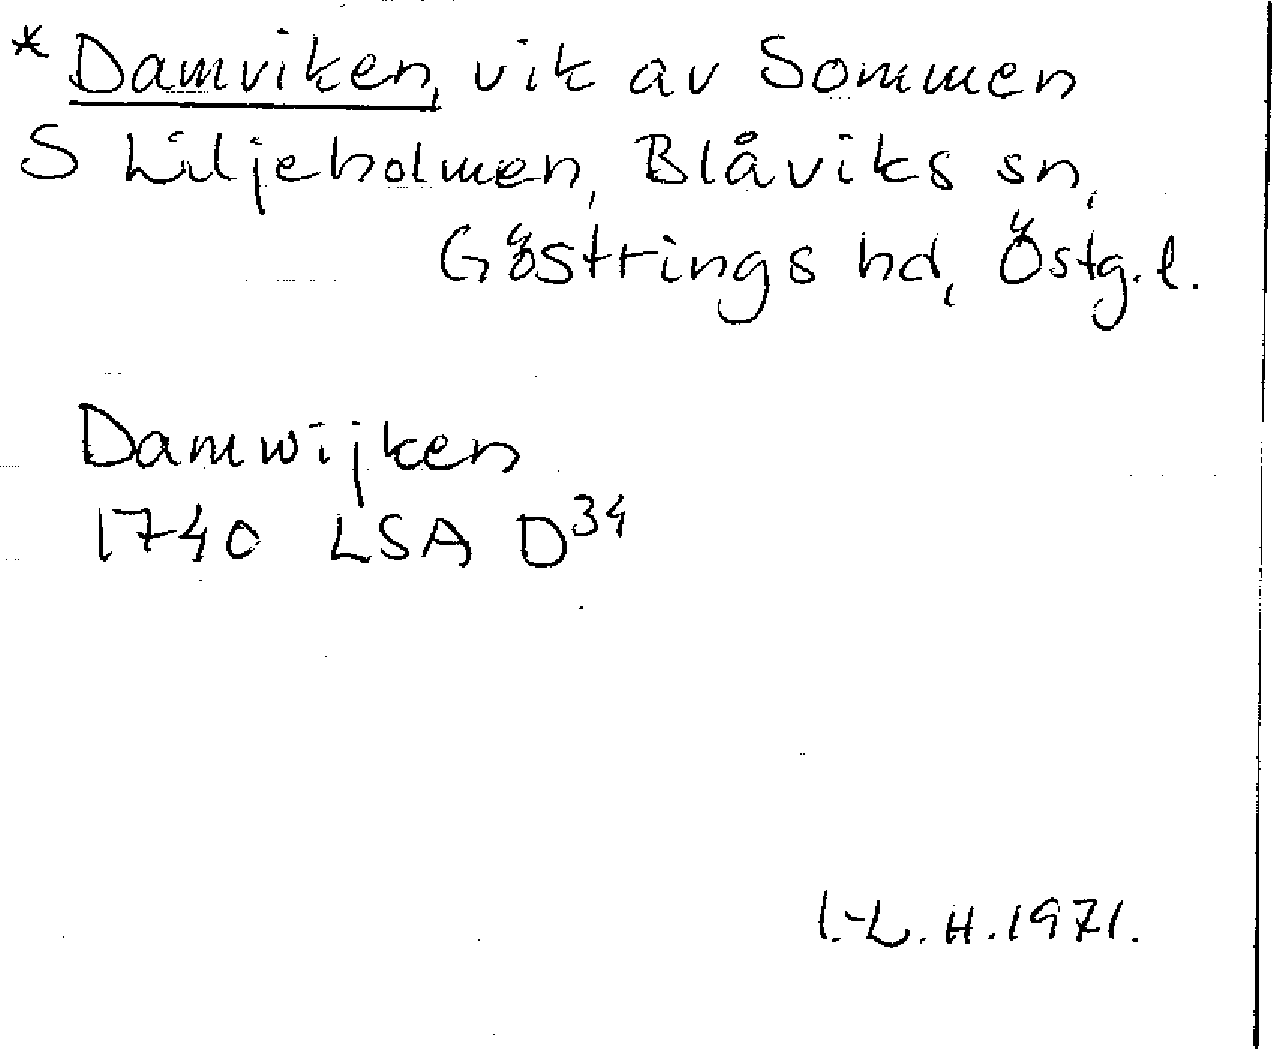 *Damviken, vik av Sommen
S Liljeholmen, Blåviks sn,
Göstrings hd, Östg.l.
Damwijken
1740 LSA D³⁴
I.-L. H. 1971.